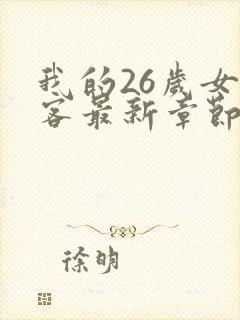 我的26歲女
客最新章節
徐明